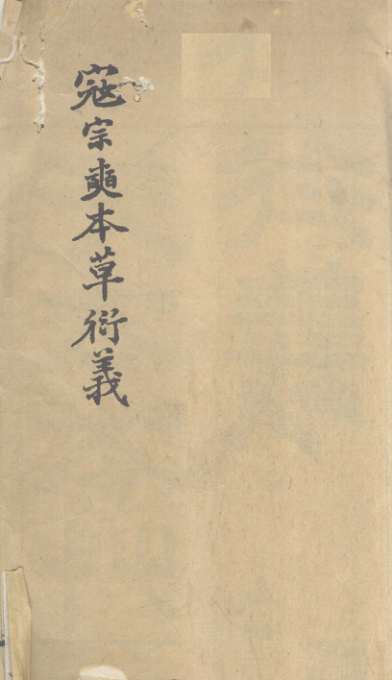 寇宗奭本草衍義